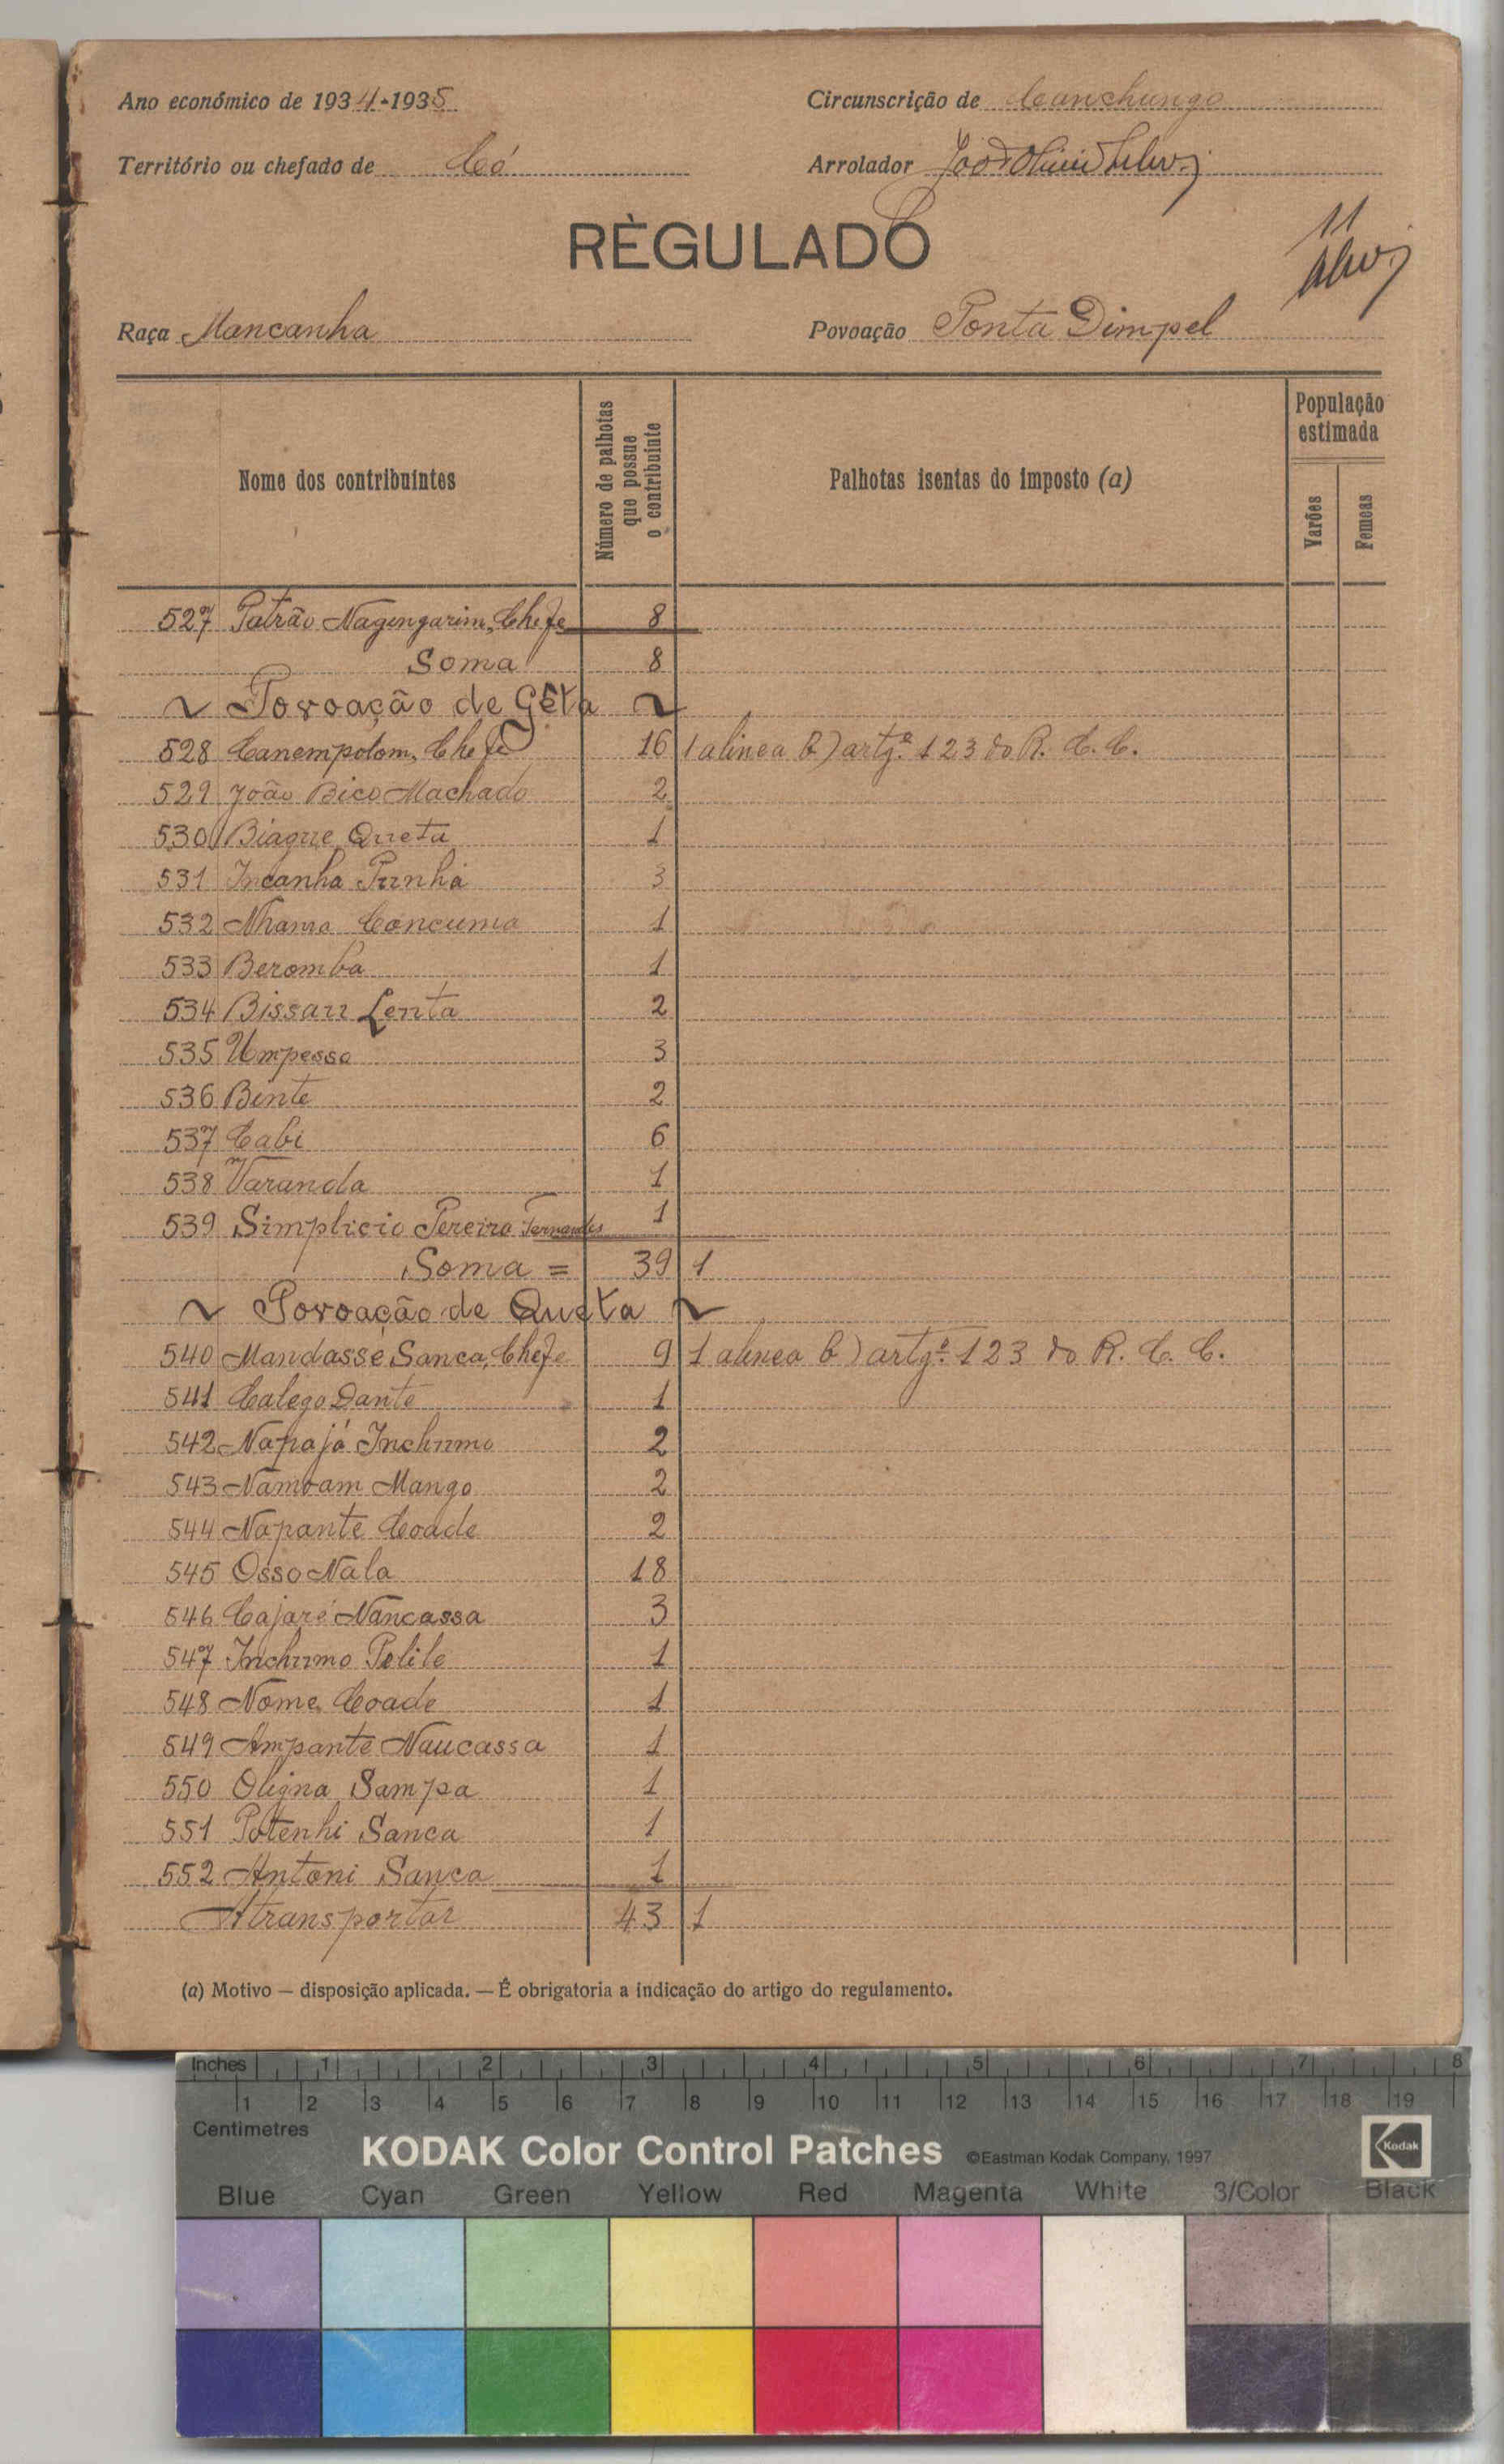 Ano económico de 1934-1935
Circunscrição de Canchungo
Território ou chefado de Có
Arrolador
RÈGULADO
11
Raça Mancanha
Povoação Ponta Dimpel
Nome dos contribuintes
Número de palhotas que possue o contribuinte
Palhotas isentas do imposto (a)
População estimada
Varões
Femeas
527 Patrão Nagengarim, Chefe 8
Soma 8
~ Povoação de Gêta ~
528 Canempolom, Chefe 16 1 alinea b) artgº 123 do R. C. C.
529 João Bico Machado 2
530 Biague Queta 1
531 Incanha Punha 3
532 Nhama Concuma 1
533 Beromba 1
534 Bissau Lenta 2
535 Umpessa 3
536 Binte 2
537 Cabi 6
538 Varanda 1
539 Simplicio Pereira Fernandes 1
Soma = 39 1
~ Povoação de Queta ~
540 Mandasse Sanca, Chefe 9 1 alinea b) artgº 123 do R. C. C.
541 Calego Dante 1
542 Napajá Inchumo 2
543 Namoam Mango 2
544 Napante Coade 2
545 Osso Nala 18
546 Cajaré Nancassa 3
547 Inchumo Polile 1
548 Nome Coade 1
549 Ampante Naucassa 1
550 Oligna Sampa 1
551 Potenhi Sanca 1
552 Antoni Sanca 1
A transportar 43 1
(a) Motivo — disposição aplicada. — É obrigatoria a indicação do artigo do regulamento.
Inches 1 2 3 4 5 6 7 8
1 2 3 4 5 6 7 8 9 10 11 12 13 14 15 16 17 18 19
Centimetres
KODAK Color Control Patches ©Eastman Kodak Company, 1997 Kodak
Blue Cyan Green Yellow Red Magenta White 3/Color Black